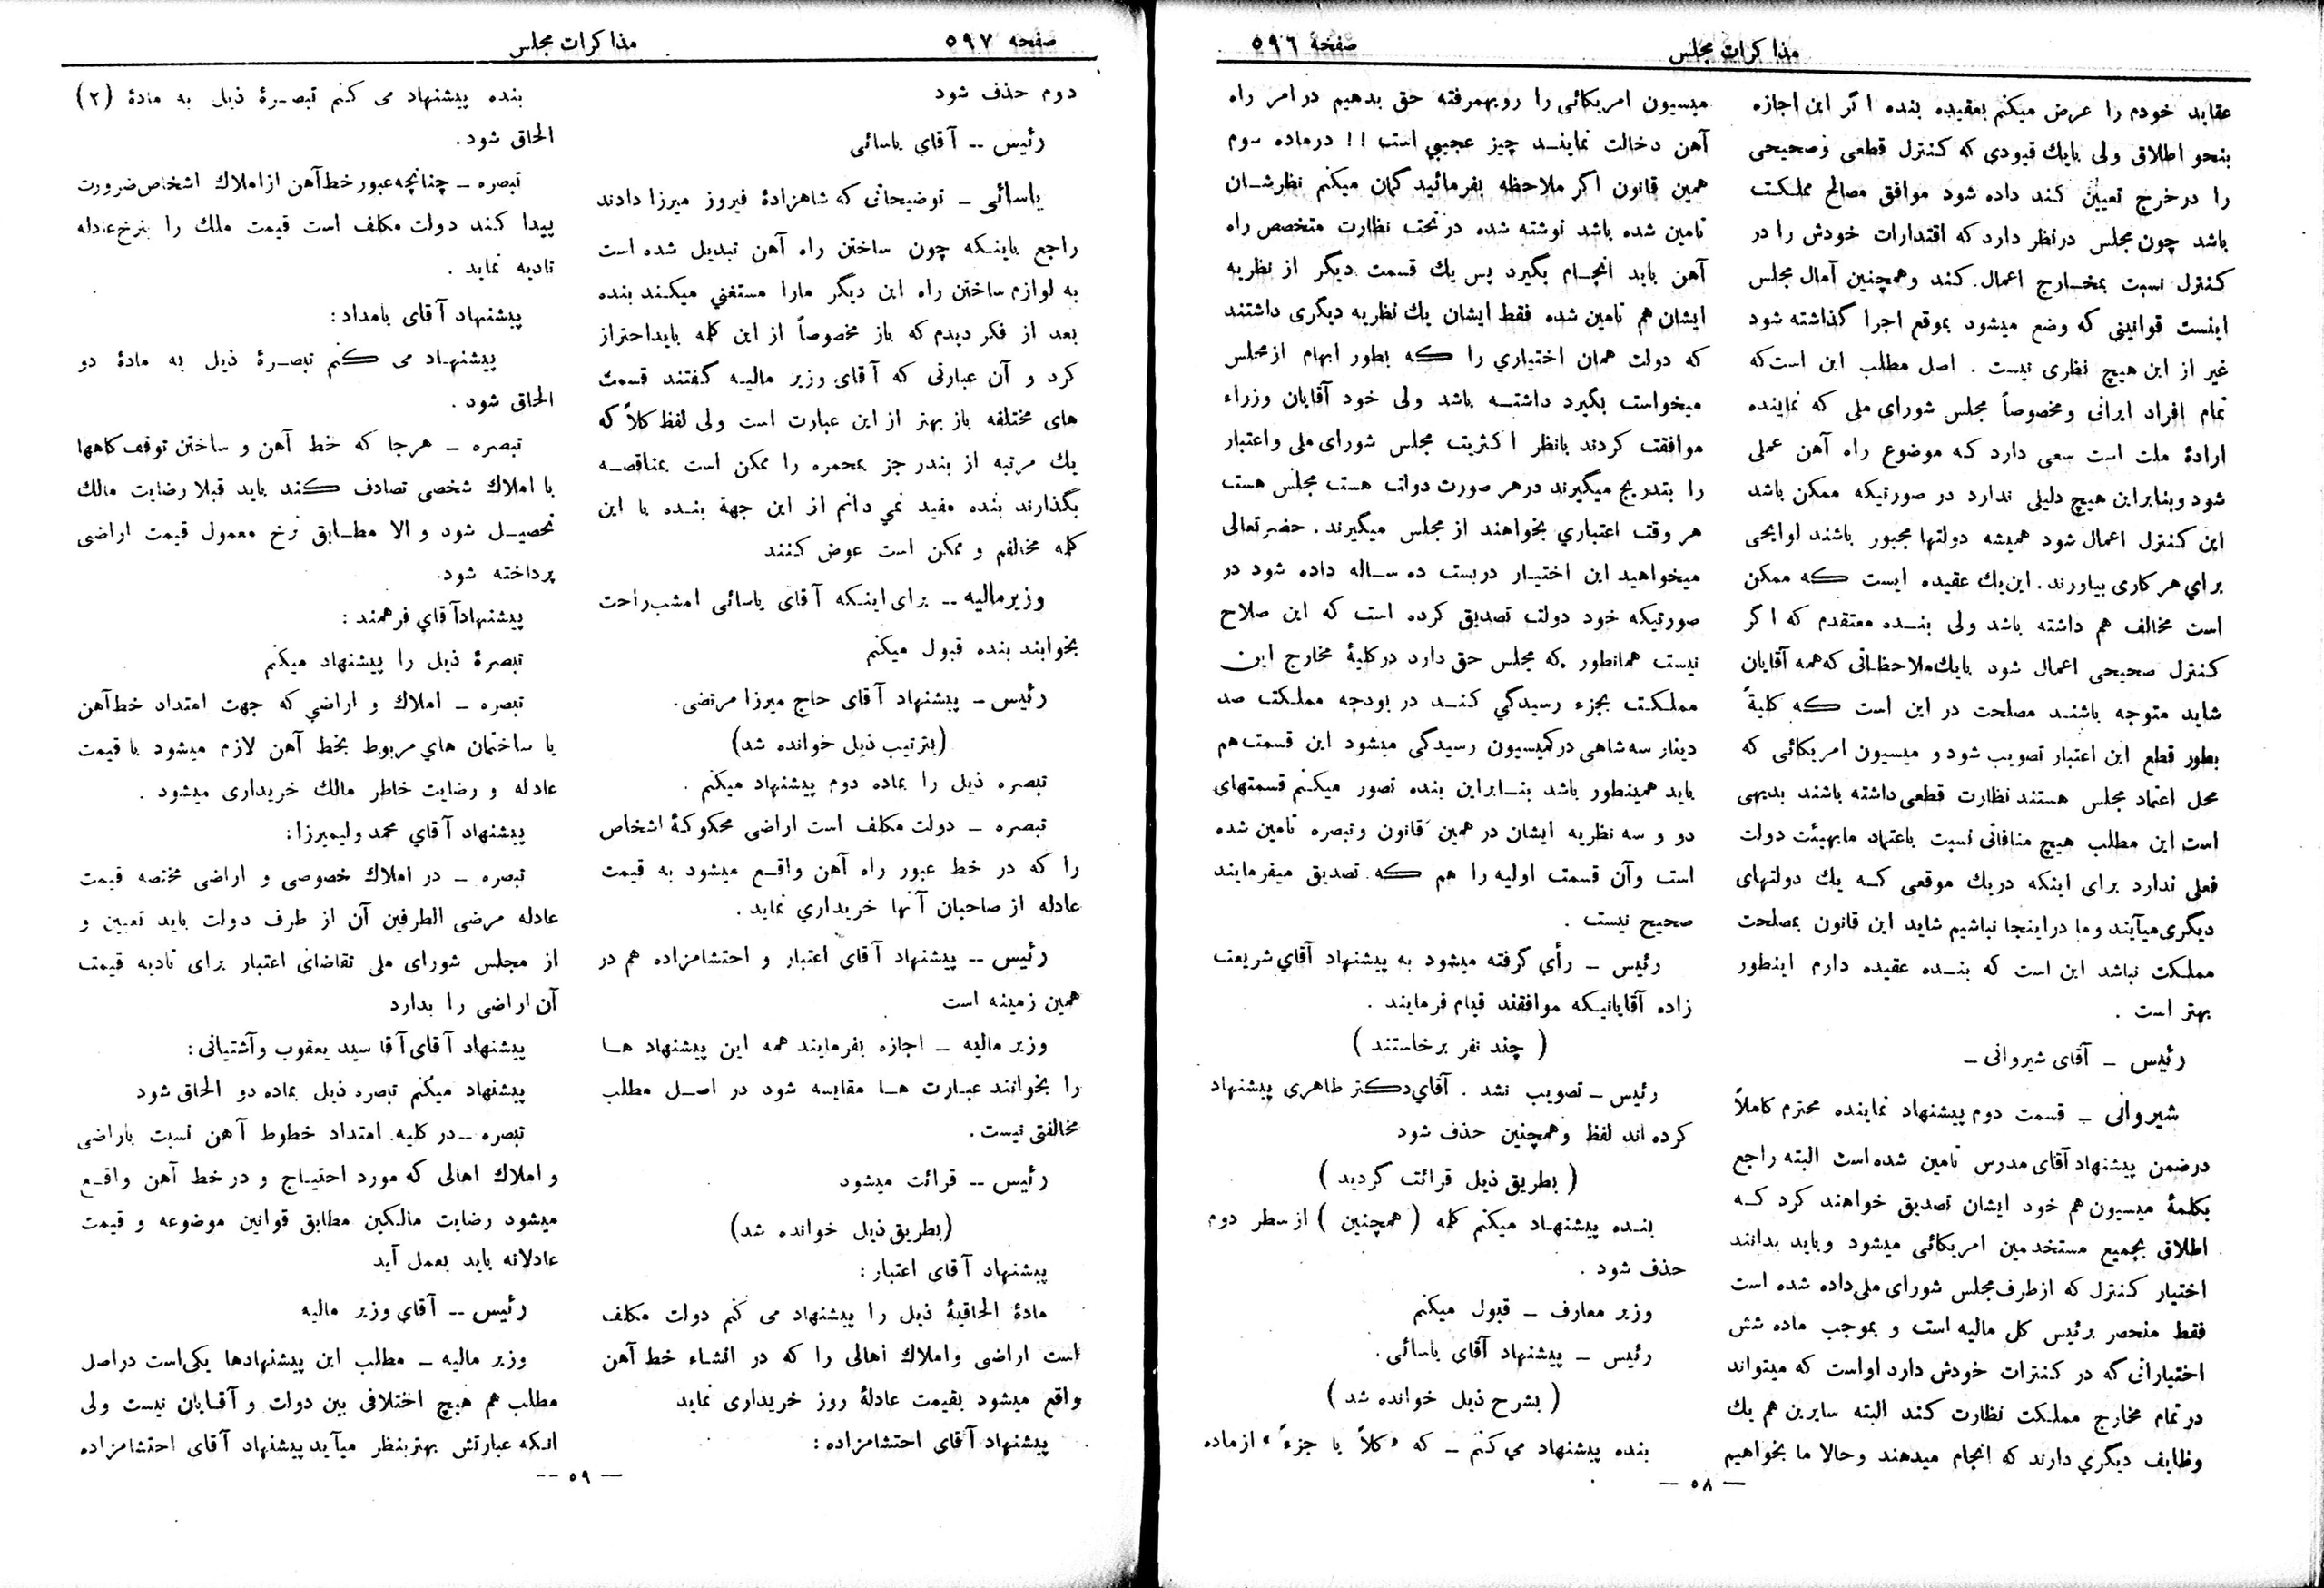 مذاکرات مجلس
صفحهٔ ٥٩٦
عقاید خودم را عرض میکنم بعقیده بنده اگر این اجازه
بنحو اطلاق ولی بایك قیودی که کنترل قطعی وصحیحی
را درخرج تعیین کند داده شود موافق مصالح مملکت
باشد چون مجلس درنظر دارد که اقتدارات خودش را در
کنترل نسبت بمخـارج اعمال. کند وهمچنین آمال مجلس
اینست قوانینی که وضع میشود بموقع اجرا گذاشته شود
غیر از این هیچ نظری نیست . اصل مطلب این است که
تمام افراد ایرانی ومخصوصاً مجلس شورای ملی که نماینده
ارادهٔ ملت است سعی دارد که موضوع راه آهن عملی
شود وبنابراین هیچ دلیلی ندارد در صورتیکه ممکن باشد
این کنترل اعمال شود همیشه دولتها مجبور باشند لوایحی
برای هرکاری بیاورند. این یك عقیده ایست که ممکن
است مخالف هم داشته باشد ولی بنـده معتقدم که اگر
کنترل صحیحی اعمال شود بایك ملاحظاتی که همه آقایان
شاید متوجه باشند مصلحت در این است که کلیةً
بطور قطع این اعتبار تصویب شود و میسیون امریکائی که
محل اعتماد مجلس هستند نظارت قطعی داشته باشند بدیهی
است این مطلب هیچ منافاتی نسبت باعتماد مابهیئت دولت
فعلی ندارد برای اینکه دریك موقعی کـه یك دولتهای
دیگری میآیند وما دراینجا نباشیم شاید این قانون بمصلحت
مملکت نباشد این است که بنـده عقیده دارم اینطور
بهتر است .
رئیس ـ آقای شیروانی ـ
شیروانی ـ قسمت دوم پیشنهاد نماینده محترم کاملاً
درضمن پیشنهاد آقای مدرس تامین شده است البته راجع
بکلمهٔ میسیون هم خود ایشان تصدیق خواهند کرد کـه
اطلاق بجمیع مستخدمین امریکائی میشود وباید بدانند
اختیار کنترل که ازطرف مجلس شورای ملی داده شده است
فقط منحصر برئیس کل مالیه است و بموجب ماده شش
اختیاراتی که در کنترات خودش دارد اواست که میتواند
درتمام مخارج مملکت نظارت کند البته سایرین هم یك
وظایف دیگری دارند که انجام میدهند وحالا ما بخواهیم
میسیون امریکائی را رویهمرفته حق بدهیم درامر راه
آهن دخالت نماینـد چیز عجیبی است !! درماده سوم
همین قانون اگر ملاحظه بفرمائید گمان میکنم نظرشـان
تامین شده باشد نوشته شده در تحت نظارت متخصص راه
آهن باید انجـام بگیرد پس یك قسمت دیگر از نظریه
ایشان هم تامین شده فقط ایشان یك نظریه دیگری داشتند
که دولت همان اختیاری را که بطور ابهام ازمجلس
میخواست بگیرد داشتـه باشد ولی خود آقایان وزراء
موافقت کردند بانظر اکثریت مجلس شورای ملی واعتبار
را بتدریج میگیرند درهر صورت دولت هست مجلس هست
هر وقت اعتباری بخواهند از مجلس میگیرند. حضرتعالی
میخواهید این اختیـار دربست ده سـاله داده شود در
صورتیکه خود دولت تصدیق کرده است که این صلاح
نیست همانطور که مجلس حق دارد درکلیهٔ مخارج این
مملکت بجزء رسیدگی کنـد در بودجه مملکت صد
دینار سه شاهی درکمیسیون رسیدگی میشود این قسمت هم
باید همینطور باشد بنـابراین بنده تصور میکنم قسمتهای
دو و سه نظریه ایشان در همین قانون وتبصره تامین شده
است وآن قسمت اولیه را هم که تصدیق میفرمایند
صحیح نیست .
رئیس ـ رأی گرفته میشود به پیشنهاد آقای شریعت
زاده آقایانیکه موافقند قیام فرمایند .
( چند نفر برخاستند )
رئیس ـ تصویب نشد . آقای دکتر طاهری پیشنهاد
کرده اند لفظ وهمچنین حذف شود
( بطریق ذیل قرائت گردید )
بنـده پیشنهـاد میکنم کلمه ( همچنین ) ازسطر دوم
حذف شود .
وزیر معارف ـ قبول میکنم
رئیس ـ پیشنهاد آقای یاسائی.
( بشرح ذیل خوانده شد )
بنده پیشنهاد می کنم ـ که «کلاً یا جزءً» ازماده
— ٥٨ —
صفحه ٥٩٧
مذاکرات مجلس
دوم حذف شود
رئیس -- آقای یاسائی
یاسائی ـ توضیحاتی که شاهزادهٔ فیروز میرزا دادند
راجع باینکه چون ساختن راه آهن تبدیل شده است
به لوازم ساختن راه این دیگر مارا مستغنی میکند بنده
بعد از فکر دیدم که باز مخصوصاً از این کلمه بایداحتراز
کرد و آن عبارتی که آقای وزیر مالیـه گفتند قسمت
های مختلفه باز بهتر از این عبارت است ولی لفظ کلاً که
یك مرتبه از بندر جز بمحمره را ممکن است بمناقصـه
بگذارند بنده مفید نمی دانم از این جهة بنـده با این
کلمه مخالفم و ممکن است عوض کنند
وزیرمالیه -- برای اینـکه آقای یاسائی امشب راحت
بخوابند بنده قبول میکنم
رئیس ـ پیشنهاد آقای حاج میرزا مرتضی.
(بترتیب ذیل خوانده شد)
تبصره ذیل را بماده دوم پیشنهاد میکنم .
تبصره ـ دولت مکلف است اراضی محکوکهٔ اشخاص
را که در خط عبور راه آهن واقـع میشود به قیمت
عادله از صاحبان آنها خریداری نماید .
رئیس -- پیشنهاد آقای اعتبار و احتشامزاده هم در
همین زمینه است
وزیر مالیه ـ اجازه بفرمایند همه این پیشنهاد هـا
را بخوانند عبـارت هـا مقایسه شود در اصـل مطلب
مخالفتی نیست .
رئیس -- قرائت میشود
(بطریق ذیل خوانده شد)
پیشنهاد آقای اعتبار :
مادهٔ الحاقیهٔ ذیل را پیشنهاد می کنم دولت مکلف
است اراضی واملاك اهالی را که در انشاء خط آهن
واقع میشود بقیمت عادلهٔ روز خریداری نماید
پیشنهاد آقای احتشامزاده :
بنده پیشنهاد می کنم تبصـرهٔ ذیل به مادهٔ (٢)
الحاق شود .
تبصره ـ چنانچه عبور خط آهن ازاملاك اشخاص ضرورت
پیدا کند دولت مکلف است قیمت ملك را بنرخ عادله
تادیه نماید .
پیشنهاد آقای بامداد :
پیشنهـاد می کنم تبصـرهٔ ذیل به مادهٔ دو
الحاق شود .
تبصره ـ هرجا که خط آهن و ساختن توقف گاهها
با املاك شخصی تصادف کند باید قبلا رضایت مالك
تحصیـل شود و الا مطـابق نرخ معمول قیمت اراضی
پرداخته شود.
پیشنهادآقای فرهمند :
تبصرهٔ ذیل را پیشنهاد میکنم
تبصره ـ املاك و اراضی که جهت امتداد خط آهن
یا ساختمان های مربوط بخط آهن لازم میشود با قیمت
عادله و رضایت خاطر مالك خریداری میشود .
پیشنهاد آقای محمد ولیمیرزا:
تبصره ـ در املاك خصوصی و اراضی مختصه قیمت
عادله مرضی الطرفین آن از طرف دولت باید تعیین و
از مجلس شورای ملی تقاضای اعتبار برای تادیه قیمت
آن اراضی را بدارد
پیشنهاد آقای آقا سید یعقوب وآشتیانی :
پیشنهاد میکنم تبصره ذیل بماده دو الحاق شود
تبصره -- در کلیه امتداد خطوط آهن نسبت باراضی
و املاك اهالی که مورد احتیـاج و در خط آهن واقـع
میشود رضایت مالکین مطابق قوانین موضوعه و قیمت
عادلانه باید بعمل آید
رئیس -- آقای وزیر مالیه
وزیر مالیه ـ مطلب این پیشنهادها یکی است دراصل
مطلب هم هیچ اختلافی بین دولت و آقـایان نیست ولی
آنکه عبارتش بهتربنظر میآید پیشنهاد آقای احتشامزاده
— ٥٩ --